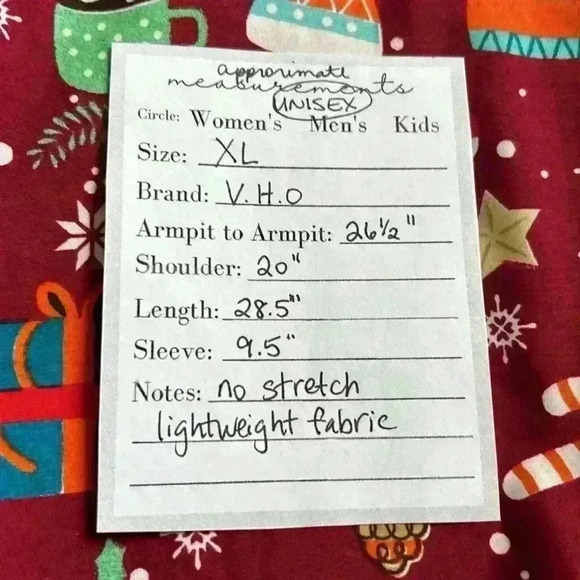 approximate
measurements
UNISEX
Circle: Women's Men's Kids
Size: XL
Brand: V.H.O
Armpit to Armpit: 26½"
Shoulder: 20"
Length: 28.5"
Sleeve: 9.5"
Notes: no stretch
lightweight fabric